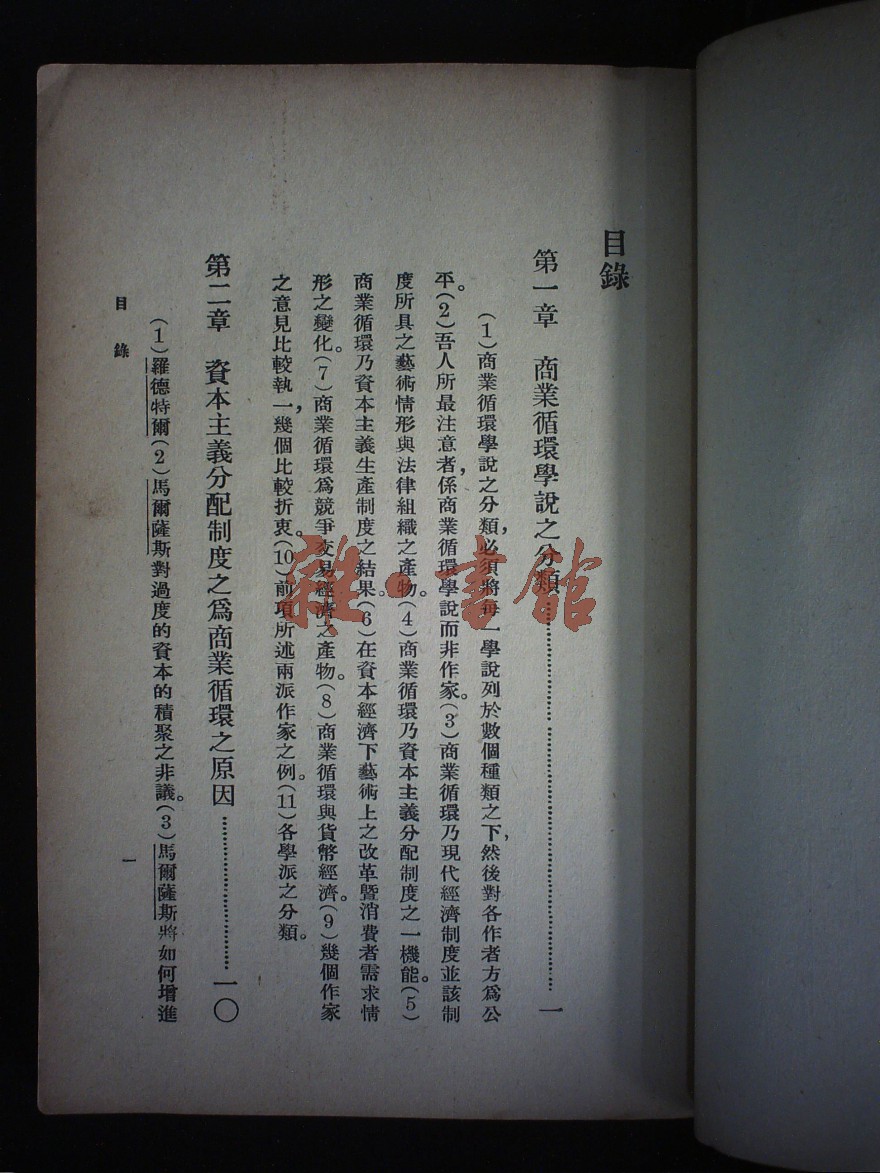 目錄
第一章　商業循環學說之分類……………………………………………一
（1）商業循環學說之分類，必須將每一學說列於數個種類之下，然後對各作者方爲公
平。（2）吾人所最注意者，係商業循環學說而非作家。（3）商業循環乃現代經濟制度並該制
度所具之藝術情形與法律組織之產物。（4）商業循環乃資本主義分配制度之一機能。（5）
商業循環乃資本主義生產制度之結果。（6）在資本經濟下藝術上之改革暨消費者需求情
形之變化。（7）商業循環爲競爭交易經濟之產物。（8）商業循環與貨幣經濟。（9）幾個作家
之意見比較執一，幾個比較折衷。（10）前項所述兩派作家之例。（11）各學派之分類。
第二章　資本主義分配制度之爲商業循環之原因……………………一〇
（1）羅德特爾（2）馬爾薩斯對過度的資本的積聚之非議。（3）馬爾薩斯將如何增進
目錄
一
雜·書館